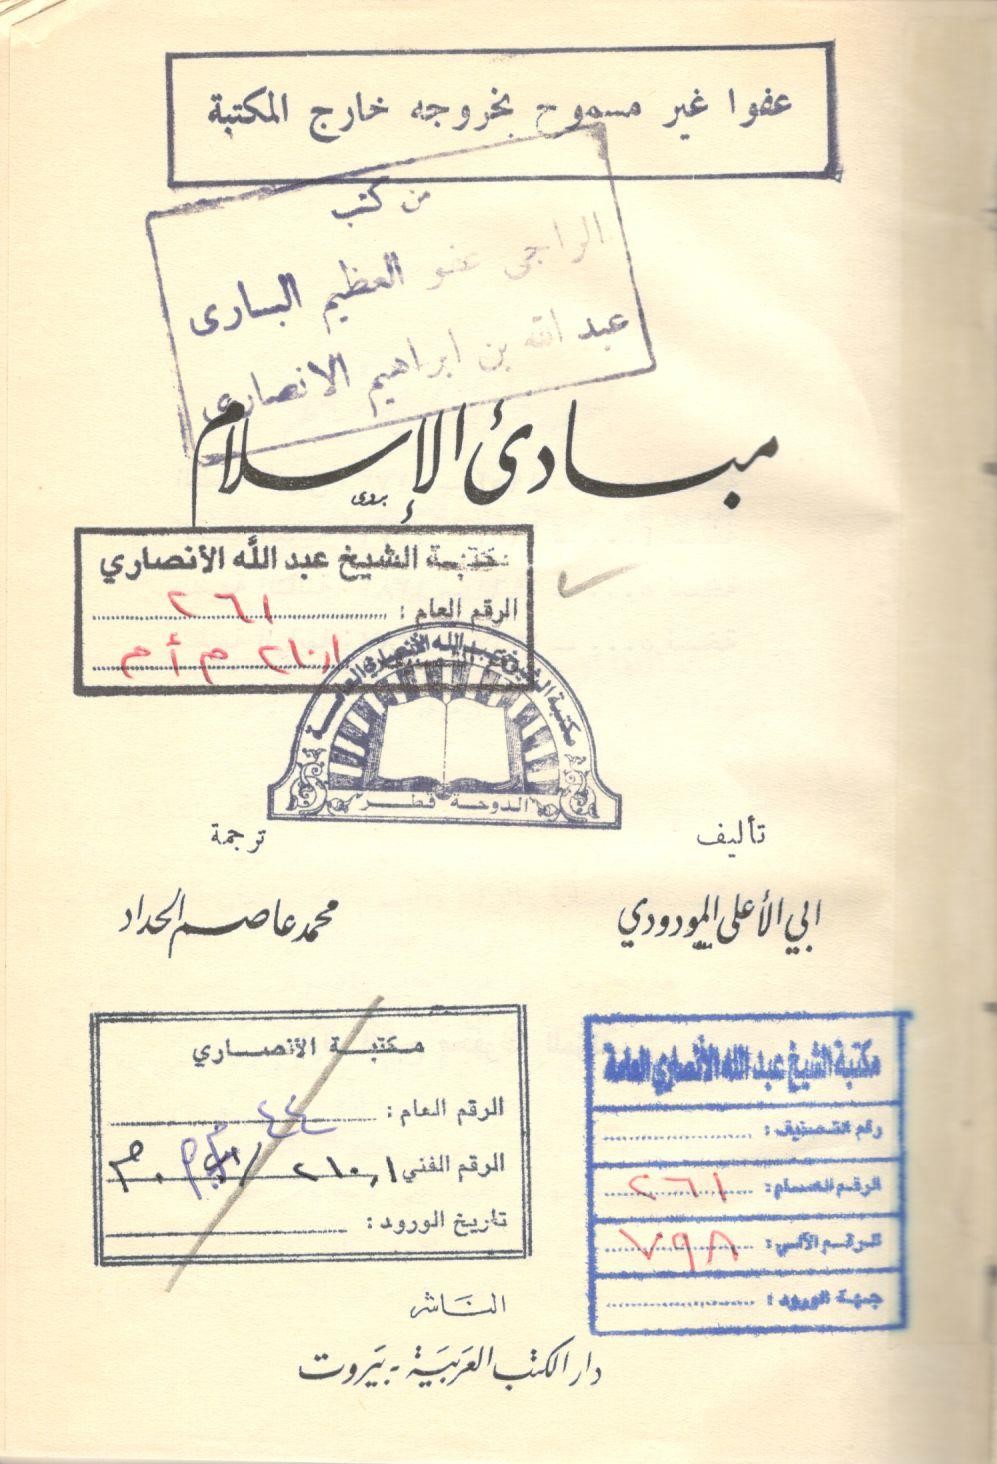 عفوا غير مسموح بخروجه خارج المكتبة
من كتب
الراجى عفو العظيم البارى
عبد الله بن ابراهيم الانصارى
مبادئ الإسلام
مكتبة الشيخ عبد الله الأنصاري
الرقم العام : ٢٦١
٢١٠٫١ م أ م
مكتبة الشيخ عبد الله الأنصاري العامة
الدوحة قطر
تأليف
ترجمة
ابي الأعلى المودودي
محمد عاصم الحداد
مكتبة الأنصاري
الرقم العام : ٤٤
الرقم الفني ٢١٠٫١
تاريخ الورود :
مكتبة الشيخ عبد الله الأنصاري العامة
رقم التصنيف :
الرقم العام : ٢٦١
الرقم الآلي : ٧٩٨
جهة الورود :
الناشر
دار الكتب العربية - بيروت